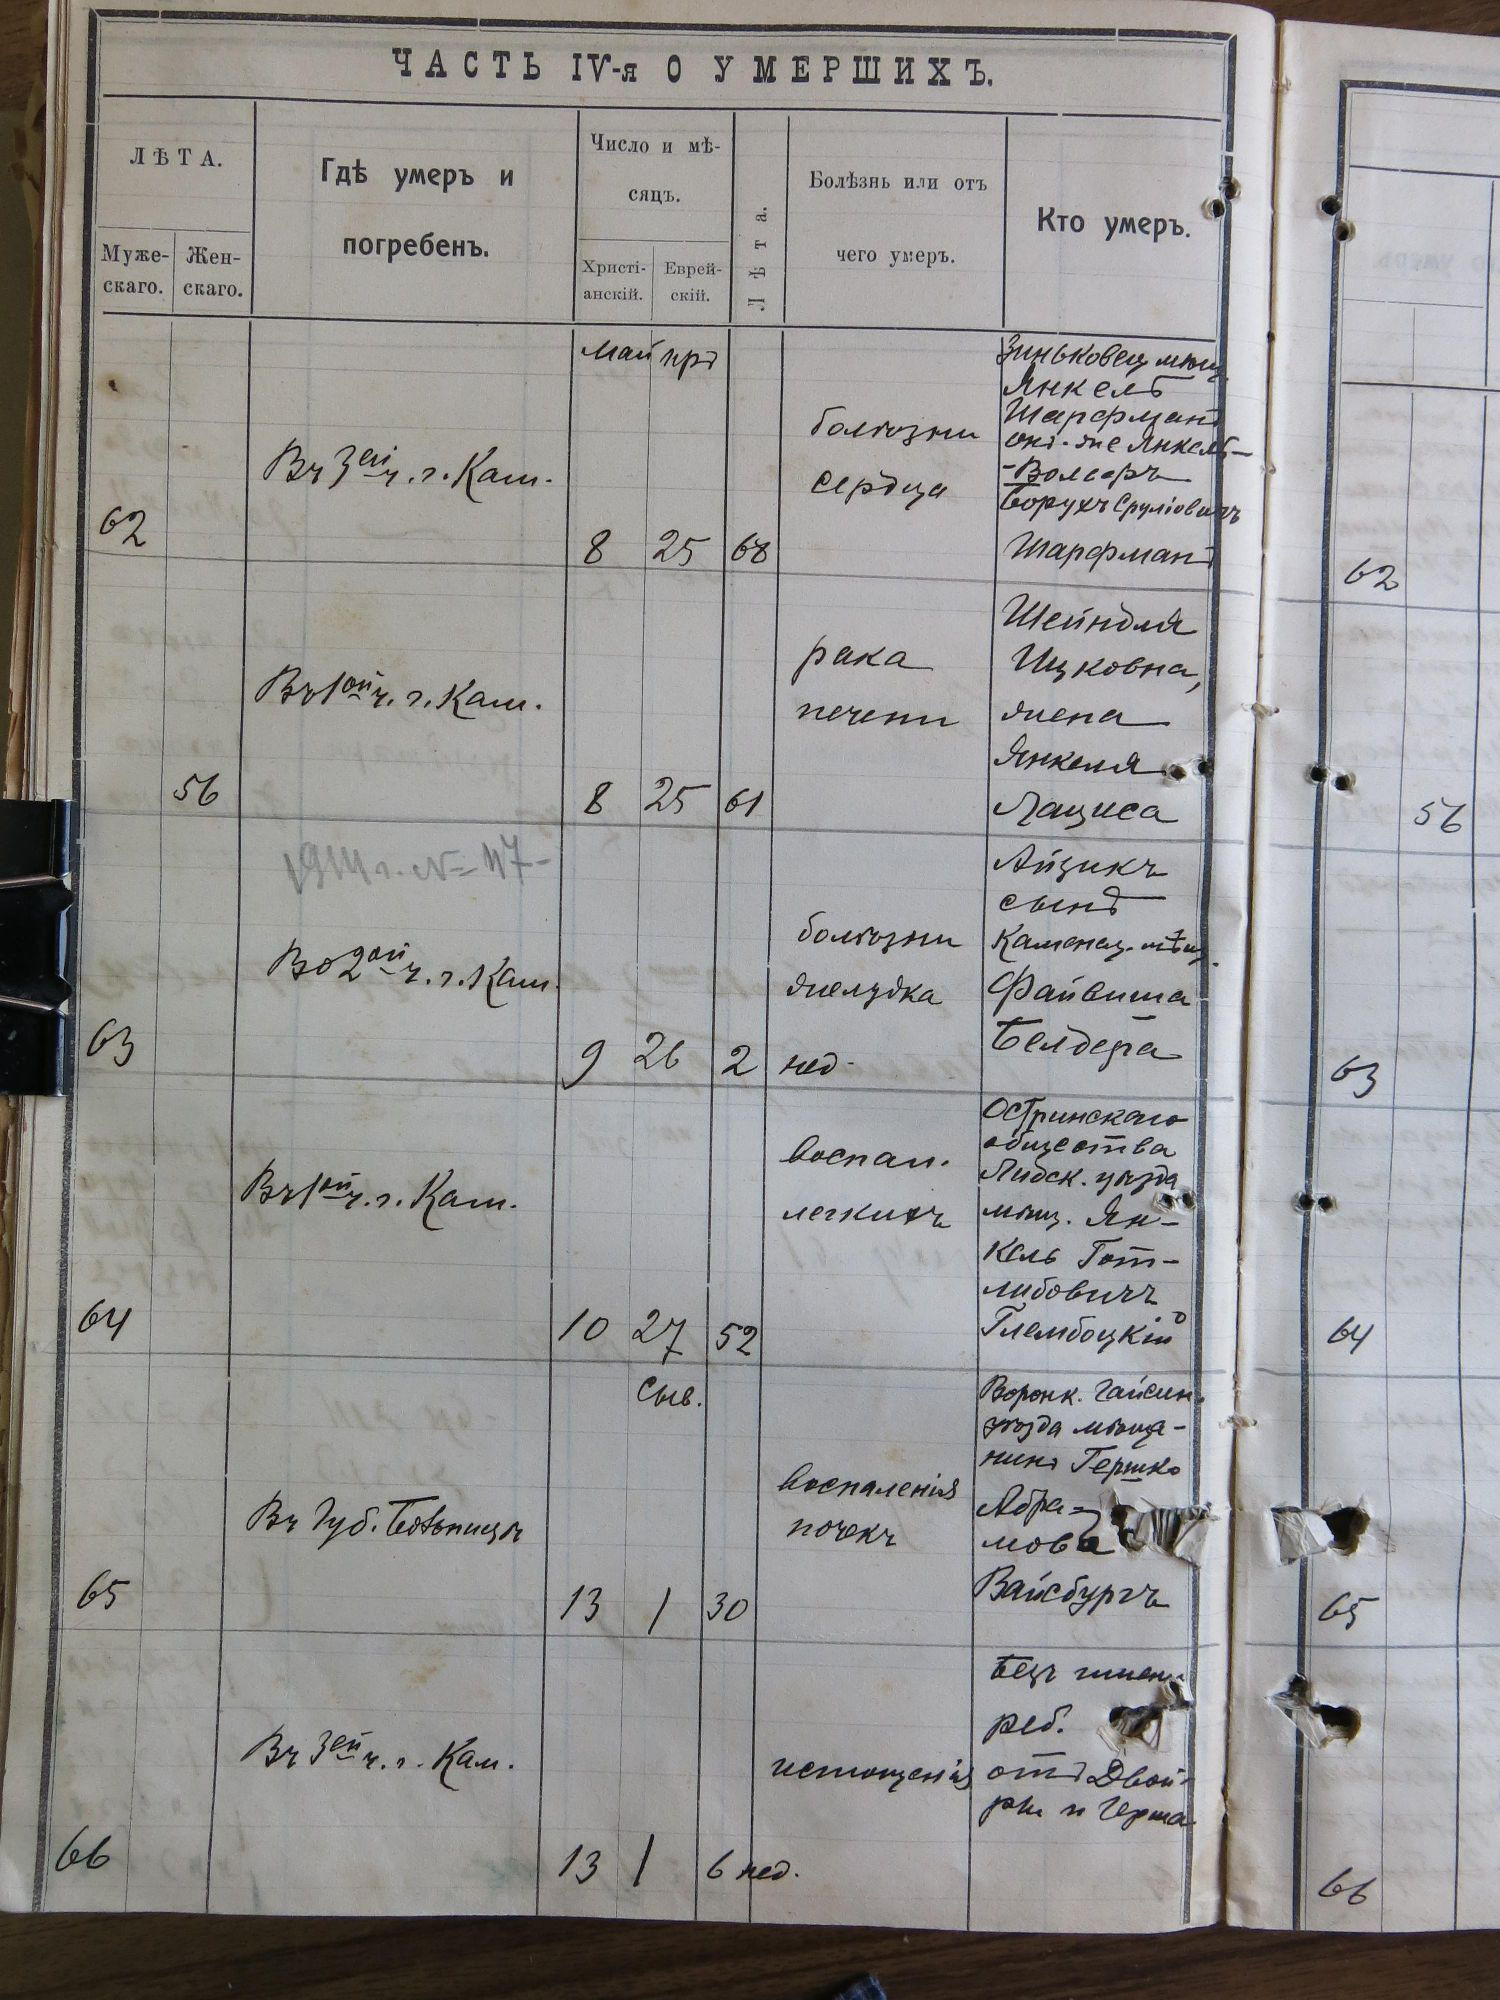 ЧАСТЬ IV-я О УМЕРШИХЪ.
ЛѢТА.
Муже-
скаго.
Жен-
скаго.
Гдѣ умеръ и
погребенъ.
Число и мѣ-
сяцъ.
Христі-
анскій.
Еврей-
скій.
Лѣта.
Болѣзнь или отъ
чего умеръ.
Кто умеръ.
май
62
Въ 3ей ч. г. Кам.
8 25 68
болѣзни
сердца
Зиньковец. мѣщ.
Янкель
Шарфманъ
онъ-же Янкель-
-Волфъ
Борухъ Сруліовичъ
Шарфманъ
62
56
Въ 1ой ч. г. Кам.
8 25 61
рака
печени
Шейндля
Ицковна,
жена
Янкеля
Лациса
56
1914 г. №
63
Во 2ой ч. г. Кам.
9 26 2 нед.
болѣзни
желудка
Айзикъ
сынъ
Каменец. мѣщ.
Файвиша
Белдера
63
64
Въ 1ой ч. г. Кам.
10 27 52
воспал.
легкихъ
Остринскаго
общества
Лидск. уѣзда
мѣщ. Ян-
кель Гот-
либовичъ
Глембоцкій
64
Сив.
65
Въ Губ. Больницѣ
13 1 30
воспаленія
почекъ
Воронк. Гайсин.
уѣзда мѣща-
нинъ Гершко
Абра-
мов
Вайсбургъ
65
66
Въ 3ей ч. г. Кам.
13 1 6 нед.
истощенія
Безъ имени
реб.
отъ Двой-
ры и Герша
66